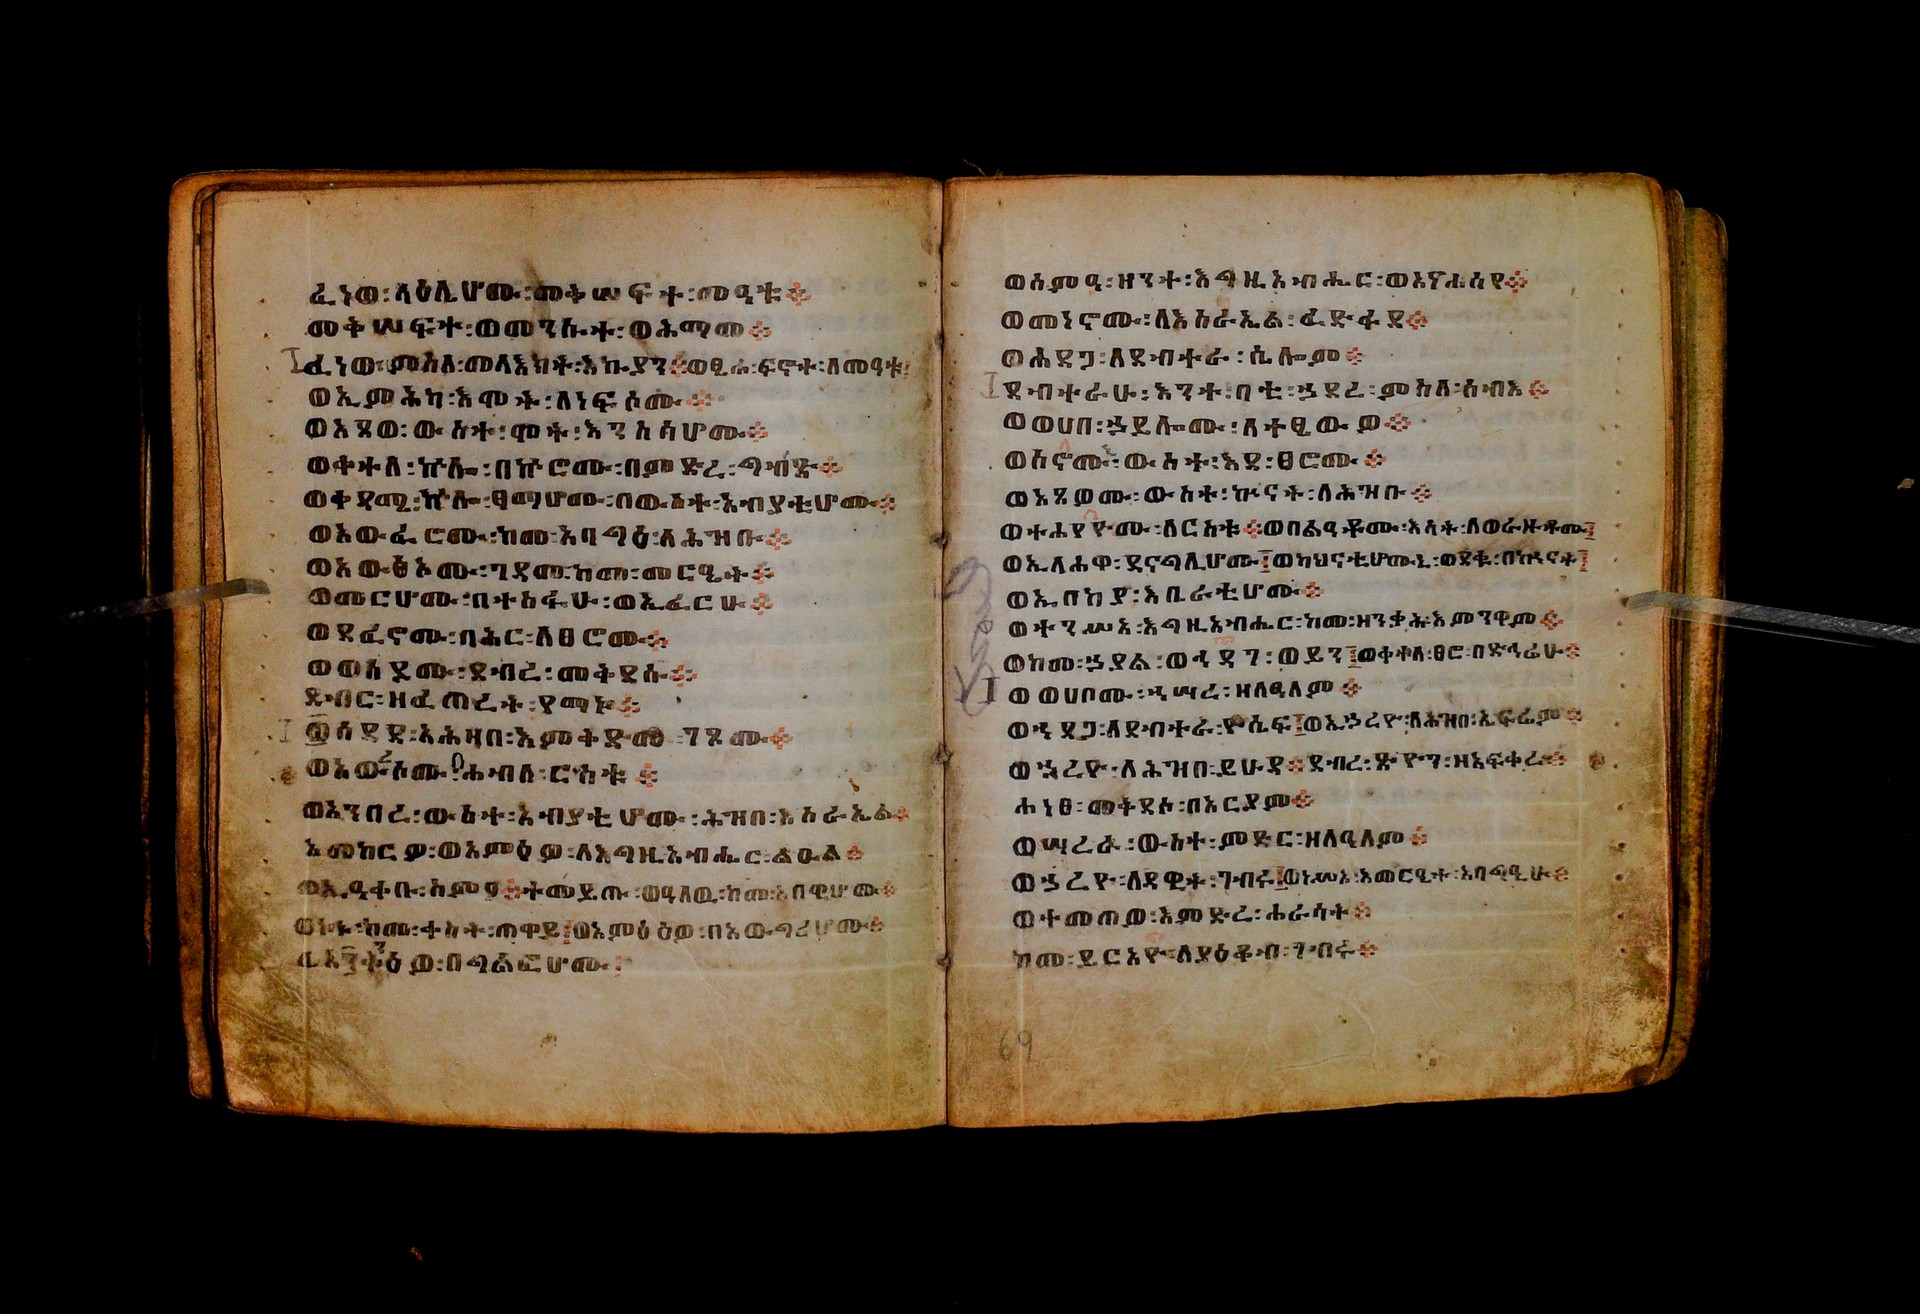 ፈነወ፡ላዕሌሆሙ፡መቅሠፍተ፡መዓቱ፨
መቅሠፍተ፡ወመንሱተ፡ወሕማመ፨
ፈነወ፡ምስለ፡መላእክት፡እኩያን፨ወፄሐ፡ፍኖተ፡ለመዓቱ፨
ወኢምሕካ፡እሞት፡ለነፍሶሙ፨
ወአጸወ፡ውስተ፡ሞት፡እንስሳሆሙ፨
ወቀተለ፡ኵሎ፡በኵሮሙ፡በምድረ፡ግብጽ፨
ወቀዳሜ፡ኵሎ፡ፃማሆሙ፡በውስተ፡አብያቲሆሙ፨
ወአውፈሮሙ፡ከመ፡አባግዕ፡ለሕዝቡ፨
ወአውፅኦሙ፡ገዳመ፡ከመ፡መርዔት፨
ወመርሆሙ፡በተስፋሁ፡ወኢፈርሁ፨
ወደፈኖሙ፡ባሕር፡ለፀሮሙ፨
ወወሰዶሙ፡ደብረ፡መቅደሱ፨
ደብር፡ዘፈጠረት፡የማኑ፨
ወሰደደ፡አሕዛበ፡እምቅድመ፡ገጾሙ፨
ወአውረሶሙ፡በሐብለ፡ርስቱ፨
ወአንበረ፡ውስተ፡አብያቲሆሙ፡ሕዝበ፡እስራኤል፨
አመከርዎ፡ወአምዕዎ፡ለእግዚአብሔር፡ልዑል፨
ወኢዓቀቡ፡ስምዖ፨ተመይጡ፡ወዓለዉ፡ከመ፡አበዊሆሙ፨
ወኮኑ፡ከመ፡ቀስት፡ጠዋይ፤ወአምዕዕዎ፡በአውግሪሆሙ፨
በግልፎሆሙ፨
ወሰምዓ፡ዝንተ፡እግዚአብሔር፡ወአፆሐሰየ፨
ወመነኖሙ፡ለእስራኤል፡ፈድፋደ፨
ወሕደጋ፡ለደብተራ፡ሴሎም፨
ደብተራሁ፡እንተ፡ባቲ፡ኀደረ፡ምስለ፡ሰብእ፨
ወወሀበ፡ኀይሎሙ፡ለተፄውዎ፨
ወስኖሙ፡ውስተ፡እደ፡ፀሮሙ፨
ወአጸዎሙ፡ውስተ፡ኲናት፡ለሕዝቡ፨
ወተሐየዮሙ፡ለርስቱ፨ወበልዓቶሙ፡እሳት፡ለወራዙቶሙ፤
ወኢላሐዋ፡ደናግሊሆሙ፤ወካህናቲሆሙኒ፡ወደቁ፡በኲናት፤
ወኢበከያ፡አቤራቲሆሙ፨
ወተንሥአ፡እግዚአብሔር፡ከመ፡ዘንቃሕ፡እምንዋም፨
ወከመ፡ኀያል፡ወኀዳገ፡ወይን፤ወቀተለ፡ፀሮ፡በድኅሬሁ፨
ወወሀቦሙ፡ኀሣረ፡ዘለዓለም፨
ወኀደጋ፡ለደብተራ፡ዮሴፍ፤ወኢኀረዮ፡ለሕዝበ፡ኤፍሬም፨
ወኀረዮ፡ለሕዝበ፡ይሁዳ፨ደብረ፡ጽዮን፡ዘአፍቀረ፨
ሐነፀ፡መቅደሱ፡በአርያም፨
ወሣረራ፡ውስተ፡ምድር፡ዘለዓለም፨
ወኀረዮ፡ለዳዊት፡ገብሩ፤ወነሥአ፡እመርዔተ፡አባግዒሁ፨
ወተመጠዎ፡እምድኅረ፡ሐራሳት፨
ከመ፡ይርአዮ፡ለያዕቆብ፡ገብሩ፨
69